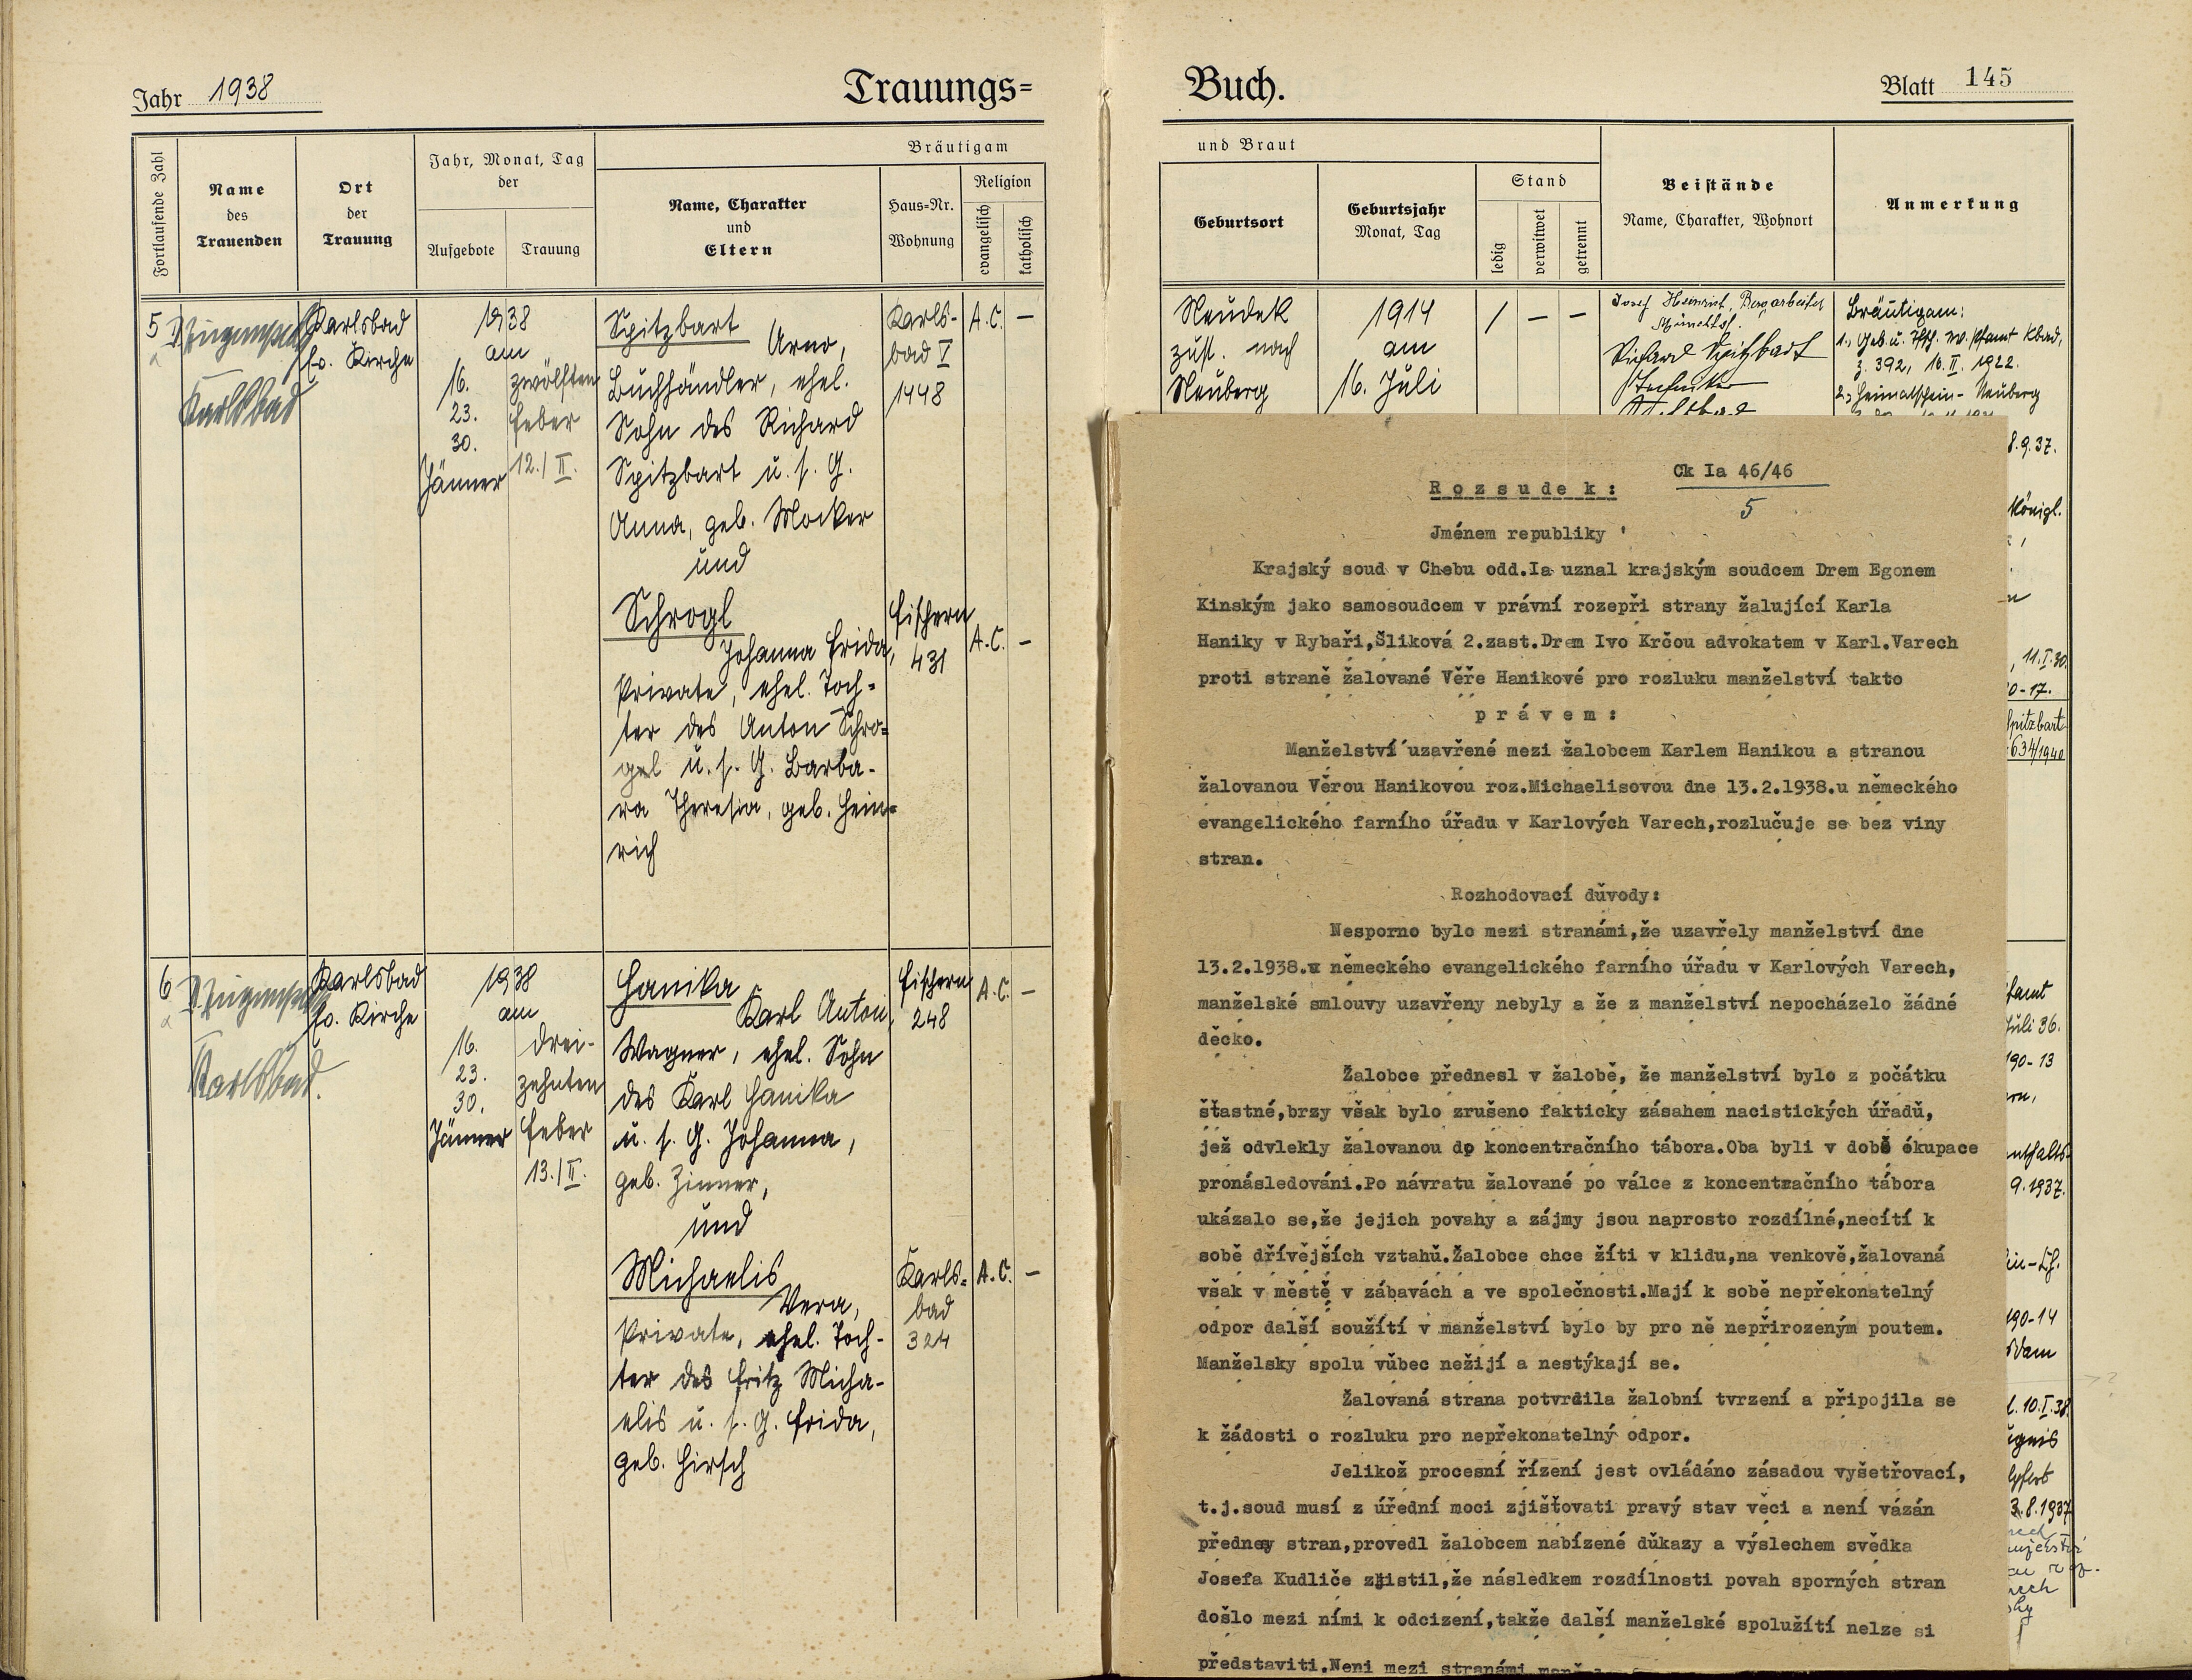 Jahr 1938
Trauungs=
Fortlaufende Zahl
Name
des
Trauenden
Ort
der
Trauung
Jahr, Monat, Tag
der
Aufgebote
Trauung
Bräutigam
Name, Charakter
und
Eltern
Haus=Nr.
Wohnung
Religion
evangelisch
katholisch
5
Karlsbad
Karlsbad
ev. Kirche
1938
am
16.
23.
30.
Jänner
zwölften
Feber
12./II.
Spitzbart
Arno,
Buchhändler, ehel.
Sohn des Richard
Spitzbart u. s. G.
Anna, geb. Mocker
und
Schrogl
Johanna Frida,
Private, ehel. Toch=
ter des Anton Schro=
gel u. s. G. Barba-
ra Theresia, geb. Hein=
rich
Karls-
bad V
1448
A.C. –
Fischern
431
A.C. –
6
Karlsbad.
Karlsbad
ev. Kirche
1938
am
16.
23.
30.
Jänner
drei-
zehnten
Feber
13./II.
Hanika
Karl Anton,
Wagner, ehel. Sohn
des Karl Hanika
u. s. G. Johanna,
geb. Zinner,
und
Michaelis
Vera,
Private, ehel. Toch-
ter des Fritz Micha-
elis u. s. G. Frida,
geb. Hirsch
Fischern
248
A.C. –
Karls=
bad
324
A.C. –
Buch.
Blatt 145
und Braut
Geburtsort
Geburtsjahr
Monat, Tag
Stand
ledig
verwitwet
getrennt
Beistände
Name, Charakter, Wohnort
Anmerkung
Neudek
zust. nach
Neuberg
1914
am
16. Juli
/ – –
Josef Heinrich, Bergarbeiter
Richard Spitzbart
Bräutigam:
1., Geb. u. Tfsch. ev. Pfamt Kbad,
Z. 392, 16. II. 1922.
2., Heimatschein - Neuberg
8.9.37.
Königl.
, 11.I.30.
0-17.
Spitzbart
634/1940
Pfamt
Juli 36.
190-13
9.1937.
190-14
l. 10.I.38
3.8.1937
Ck Ia 46/46
5
Rozsudek:
Jménem republiky
Krajský soud v Chebu odd.Ia uznal krajským soudcem Drem Egonem
Kinským jako samosoudcem v právní rozepři strany žalující Karla
Haniky v Rybaři,Šliková 2.zast.Drem Ivo Krčou advokatem v Karl.Varech
proti straně žalované Věře Hanikové pro rozluku manželství takto
právem:
Manželství uzavřené mezi žalobcem Karlem Hanikou a stranou
žalovanou Věrou Hanikovou roz.Michaelisovou dne 13.2.1938.u německého
evangelického farního úřadu v Karlových Varech,rozlučuje se bez viny
stran.
Rozhodovací důvody:
Nesporno bylo mezi stranámi,že uzavřely manželství dne
13.2.1938.u německého evangelického farního úřadu v Karlových Varech,
manželské smlouvy uzavřeny nebyly a že z manželství nepocházelo žádné
děcko.
Žalobce přednesl v žalobě, že manželství bylo z počátku
šťastné,brzy však bylo zrušeno fakticky zásahem nacistických úřadů,
jež odvlekly žalovanou do koncentračního tábora.Oba byli v době ókupace
pronásledováni.Po návratu žalované po válce z koncentračního tábora
ukázalo se,že jejich povahy a zájmy jsou naprosto rozdílné,necítí k
sobě dřívějších vztahů.Žalobce chce žíti v klidu,na venkově,žalovaná
však v městě v zábavách a ve společnosti.Mají k sobě nepřekonatelný
odpor další soužítí v manželství bylo by pro ně nepřirozeným poutem.
Manželsky spolu vůbec nežijí a nestýkají se.
Žalovaná strana potvrdila žalobní tvrzení a připojila se
k žádosti o rozluku pro nepřekonatelný odpor.
Jelikož procesní řízení jest ovládáno zásadou vyšetřovací,
t.j.soud musí z úřední moci zjišťovati pravý stav věci a není vázán
přednesy stran,provedl žalobcem nabízené důkazy a výslechem svědka
Josefa Kudliče zjistil,že následkem rozdílnosti povah sporných stran
došlo mezi ními k odcizení,takže další manželské spolužítí nelze si
představiti.Neni mezi stranámi